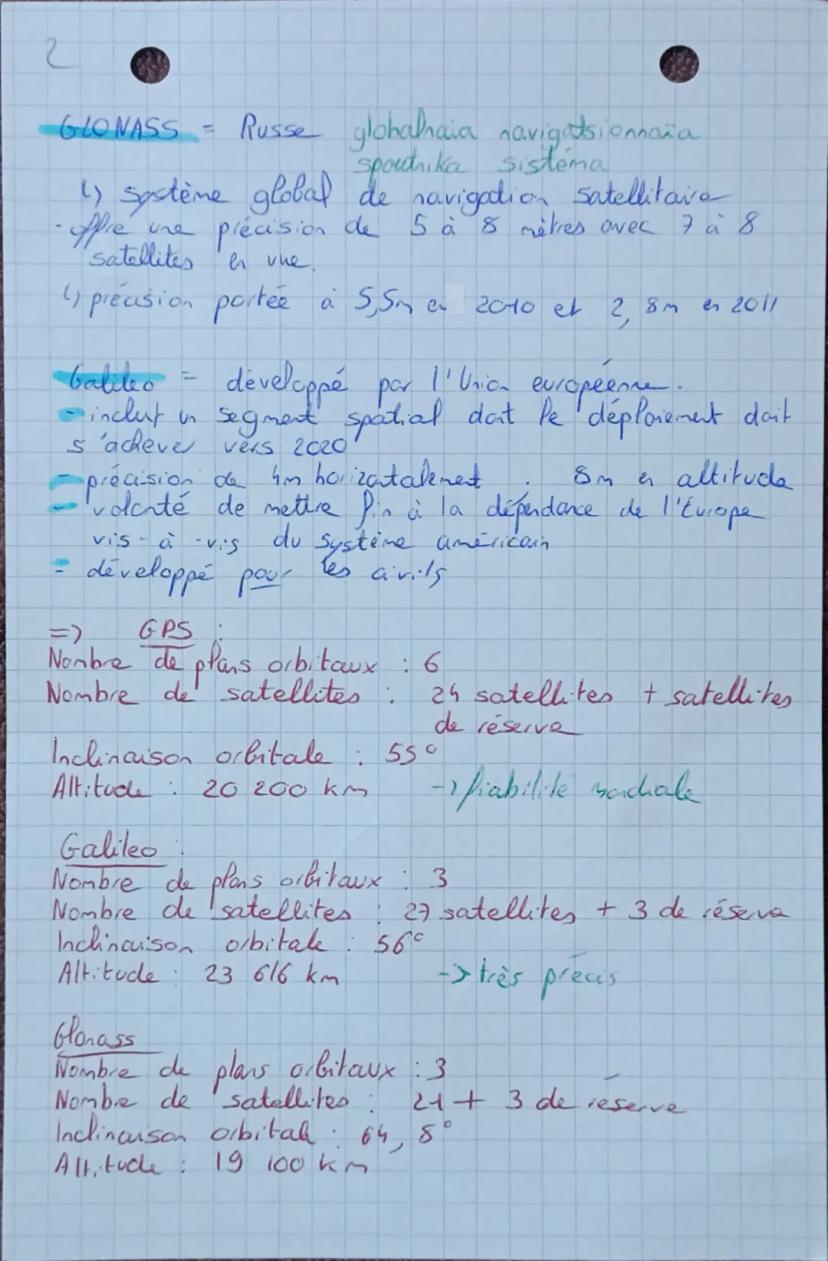 2
GLONASS = Russe globalnaïa navigatsionnaïa
spoutnika sistéma
↳ système global de navigation satellitaire
- offre une précision de 5 à 8 mètres avec 7 à 8
satellites en vue.
↳ précision portée à 5,5m en 2010 et 2,8m en 2011
Galileo = développé par l'Union européenne.
- inclut un segment spatial dont le déploiement doit
s'achever vers 2020
- précision de 4m horizontalement . 8m en altitude
- volonté de mettre fin à la dépendance de l'Europe
vis-à-vis du système américain
= développé pour les civils
=> GPS :
Nombre de plans orbitaux : 6
Nombre de satellites : 24 satellites + satellites
de réserve
Inclinaison orbitale : 55°
Altitude : 20 200 km -> fiabilité mondiale
Galileo :
Nombre de plans orbitaux : 3
Nombre de satellites : 27 satellites + 3 de réserve
Inclinaison orbitale : 56°
Altitude : 23 616 km -> très précis
Glonass
Nombre de plans orbitaux : 3
Nombre de satellites : 21 + 3 de réserve
Inclinaison orbitale : 64,8°
Altitude : 19 100 km